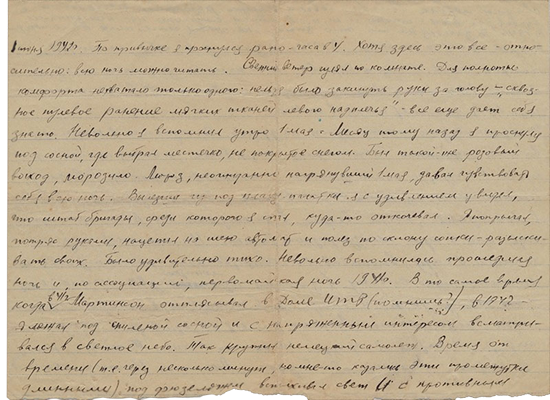 1 июня 1942г. По привычке я проснулся рано - часа в 4. Хотя здесь это все - отно-
сительно: всю ночь можно читать. Свежий ветер гулял по комнате. Для полноты
комфорта нехватало только одного: нельзя было закинуть руки за голову - „сквоз-
ное пулевое ранение мягких тканей левого надплечья" - все еще дает себя
знать. Невольно я вспомнил утро 1 мая. Месяц тому назад я проснулся
под сосной, где выбрал местечко, не покрытое снегом. Был такой-же розовый
восход, морозило. Мороз, неожиданно 1 мая, давал чувствовать
себя всю ночь. из под плащ-палатки я с удивлением увидел,
что штаб бригады, среди которого я спал, куда-то откочевал. Я
потряс руками, нацепил на шею автомат и полез по склону сопки - разыски-
вать своих. Было удивительно тихо. Невольно вспомнилась прошедшая
ночь и, по ассоциации, первомайская ночь 1941г. В то самое время
когда в 41г Мартинсон отплясывал в Доме ИТР (помнишь?), в 1942-
я лежал под сосной и с напряженным интересом всматри-
вался в светлое небо. Там кружил немецкий самолет. Время от
времени (т.е. через несколько минут, но мне-то казались эти промежутки
длинными), под фюзеляжем вспыхивал свет и с противным